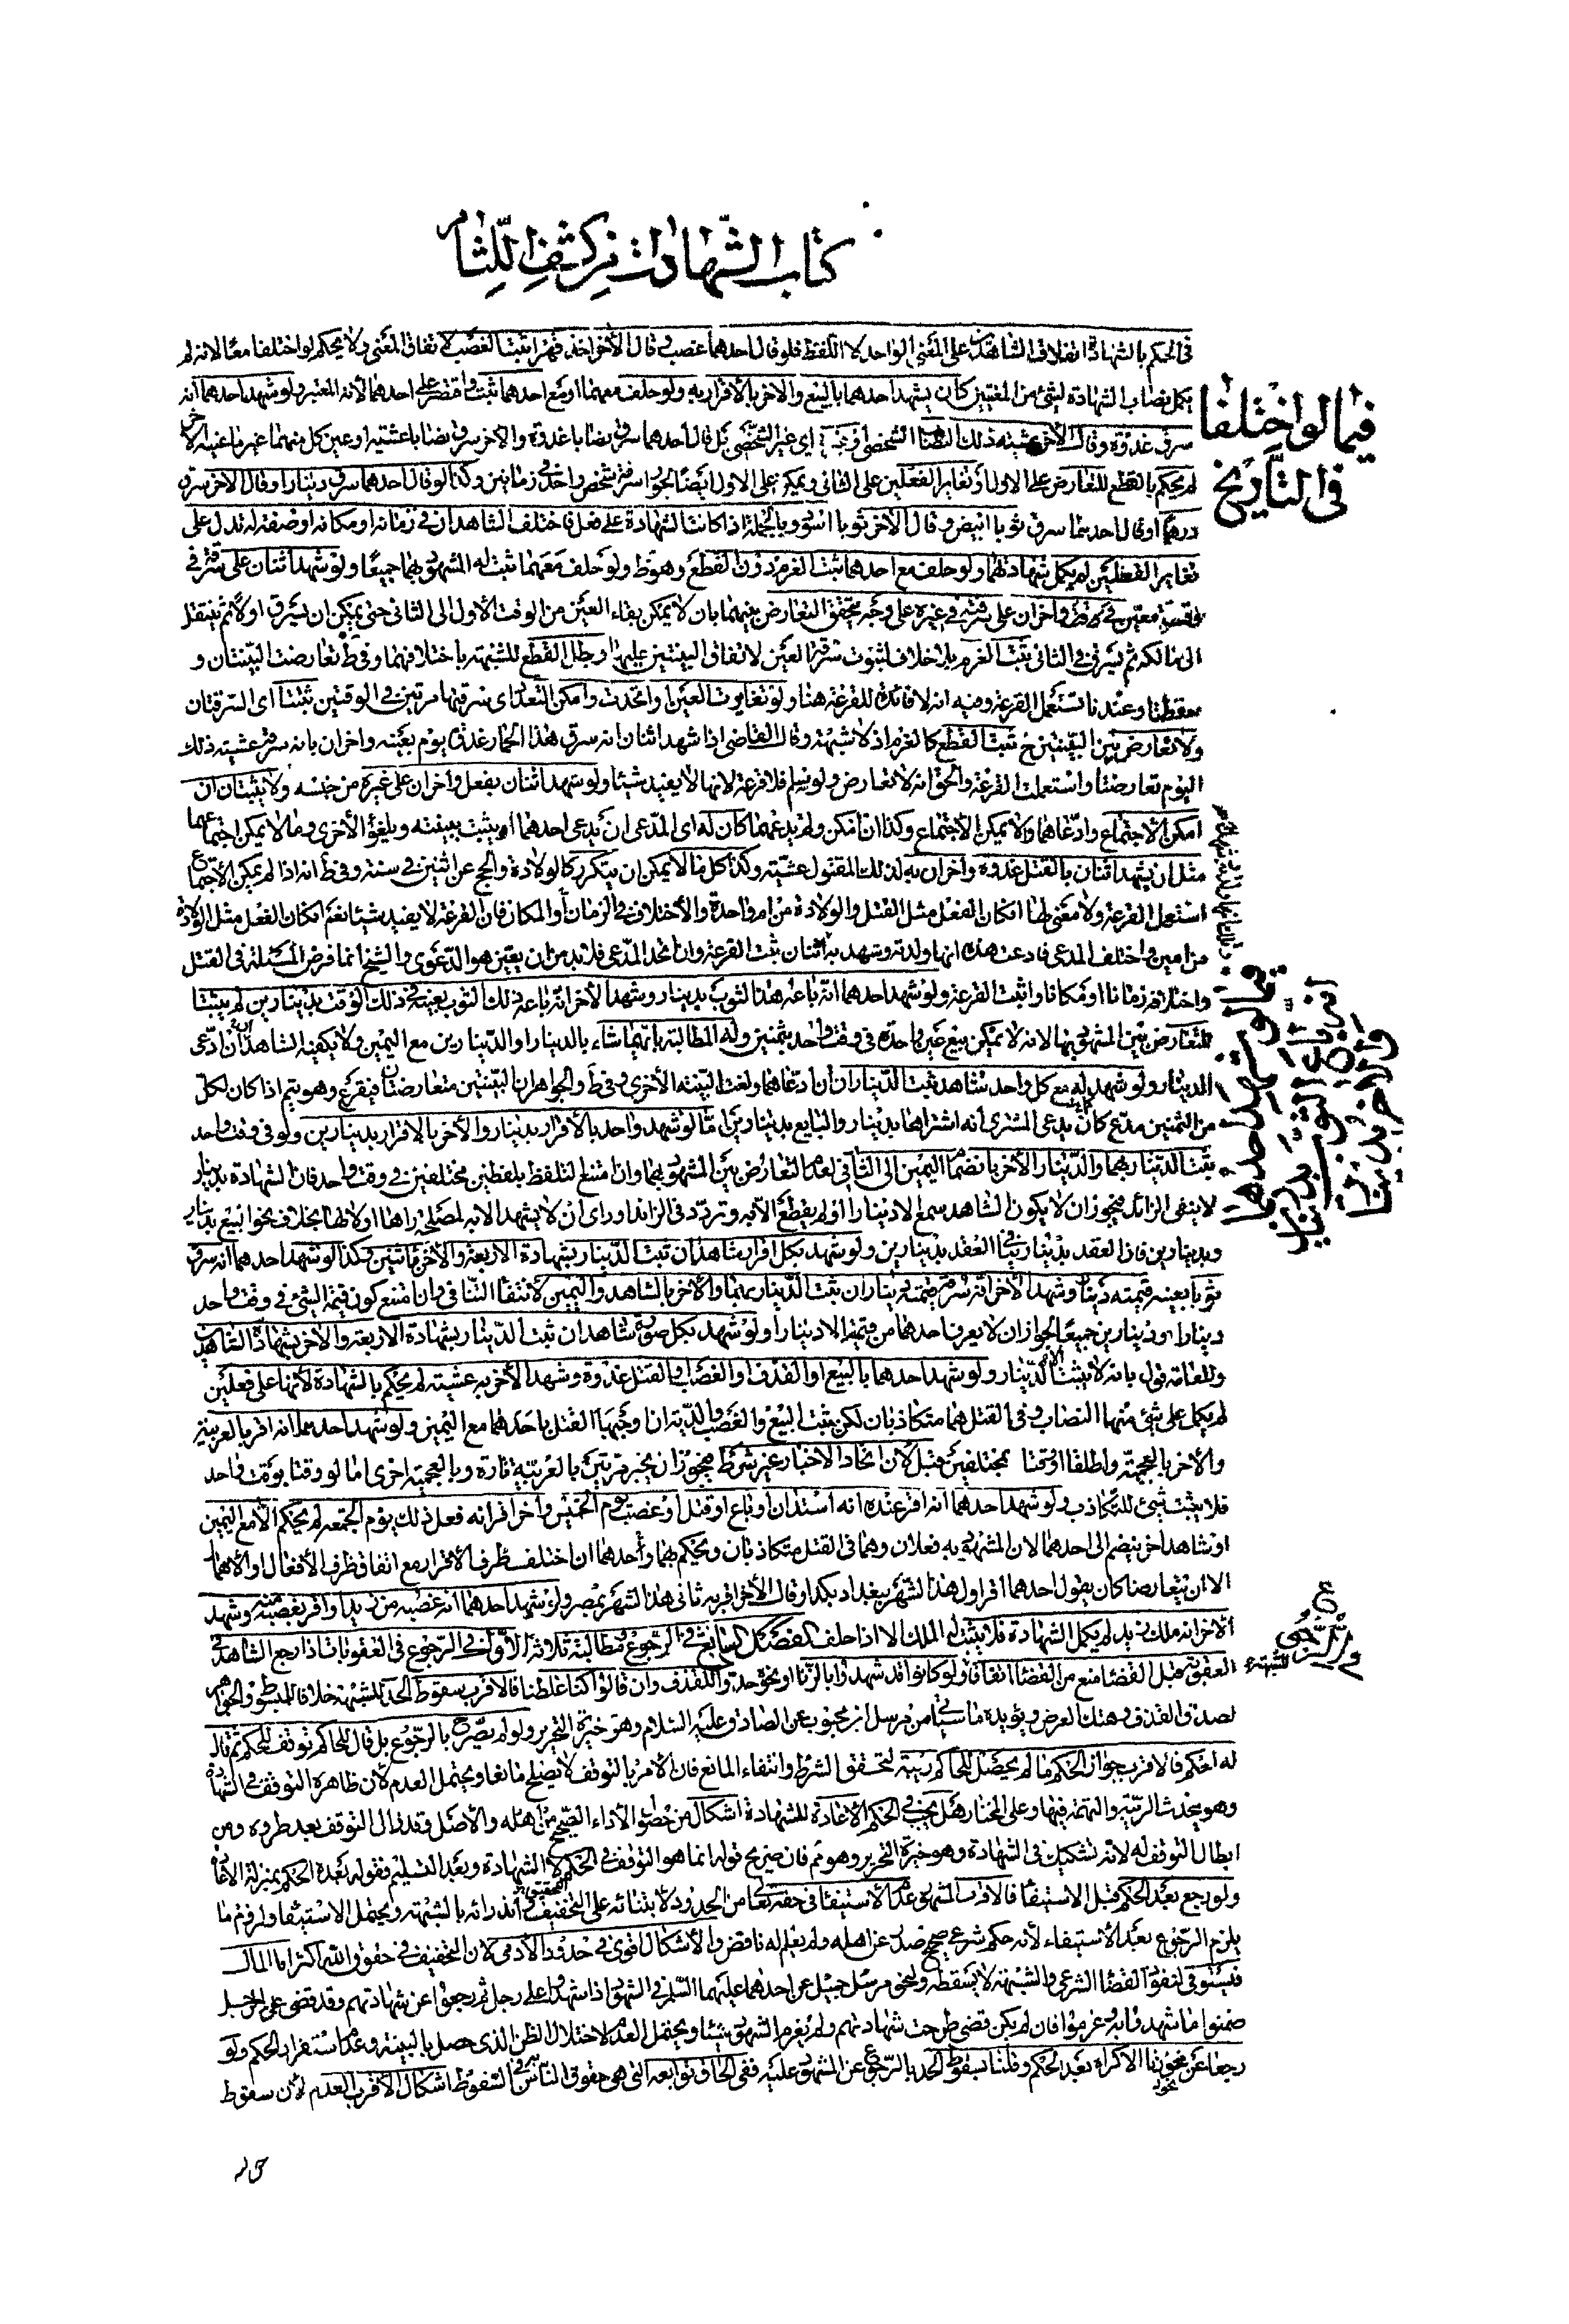 كتاب الشهادات من كشف اللثام
في الحكم بالشهادة اتفاق الشاهدين على المعنى الواحد لا اللفظ فلو قال احدهما غصب وقال الآخر اخذ قهرا ثبت الغصب لاتفاق المعنى ولا يحكم لو اختلفا معنا لانه لم
يكمل نصاب الشهادة لشئ من المعنيين كان يشهد احدهما بالبيع والاخر بالاقرار به ولو حلف معهما او مع احدهما ثبت واقتصر على احدهما لانه المعتبر ولو شهد احدهما انه
سرق غدوة وقال الآخر عشية ذلك النصاب الشخصي او غيره اي غير الشخصي بل قال احدهما سرق نصابا غدوة والآخر سرق نصابا عشية او عين كل منهما غير ما عينه الآخر
لم يحكم بالقطع للتعارض على الاول وتغاير الفعلين على الثاني ويمكن على الاول ايضا لجواز سرقة شخص واحد في زمانين وكذا لو قال احدهما سرق دينارا وقال الآخر سرق
درهما او قال احدهما سرق ثوبا ابيض وقال الآخر ثوبا اسود وبالجملة اذا كانت الشهادة على فعل فاختلف الشاهدان في زمانه او مكانه او صفة له تدل على
تغاير الفعلين لم يكمل شهادتهما ولو حلف مع احدهما ثبت الغرم دون القطع وهو ظ ولو حلف معهما ثبت له المشهود بهما جميعا ولو شهد اثنان على سرقة في
وقت معين في طرف واخران على سرقته في غيره على وجه يتحقق التعارض بينهما بان لا يمكن بقاء العين من الوقت الاول الى الثاني حتى يمكن ان يسرق اولا ثم ينتقل
الى مالكه ثم يسرق في الثاني ثبت الغرم بلا خلاف لثبوت سرقة العين لاتفاق البينتين عليها وبطل القطع للشبهة باختلافهما وفي ط تعارضت البينتان و
سقطتا وعندنا تستعمل القرعة وفيه انه لا فائدة للقرعة هنا ولو تغايرت العين او اتحدت وامكن التعدد اي سرقتها مرتين في الوقتين ثبتتا اي السرقتان
ولا تعارض بين البينتين ح ثبت القطع كالغرم اذ لا شبهة وقال القاضي اذا شهد اثنان انه سرق هذا الحمار غدوة يوم بعينه واخران بانه سرقه عشية ذلك
اليوم تعارضتا واستعملت القرعة والحق انه لا تعارض ولو سلم فلا قرعة لانها لا يفيد شيئا ولو شهد اثنان بفعل واخران على غيره من جنسه ولا يثبتان ان
امكن الاجتماع وادعاهما ولا يمكن الاجتماع وكذا ان امكن ولم يدعهما كان له اي المدعي ان يدعي احدهما او يثبت ببينته ويلغو الاخرى وما لا يمكن اجتماعهما
مثل ان يشهد اثنان بالقتل غدوة واخران به لذلك المقتول عشية وكذا كل ما لا يمكن ان يتكرر كالولادة والحج عن اثنين في سنة وفي ط انه اذا لم يمكن الاجتماع
استعمل القرعة ولا معنى لها ان كان الفعل مثل القتل والولادة من ام واحدة والاختلاف في الزمان او المكان فان القرعة لا يفيد شيئا نعم ان كان الفعل مثل الولادة
من امين واختلف المدعي فادعت هذه انها ولدته وشهد به اثنان ثبت القرعة وان اتحد المدعي فلا بد من ان يعين هو الدعوى والشيخ انما فرض المسئلة في القتل
واختلافه زمانا او مكانا واثبت القرعة ولو شهد احدهما انه باعه هذا الثوب بدينار وشهد الآخر انه باعه ذلك الثوب بعينه في ذلك الوقت بدينارين لم يثبتا
للتعارض بين المشهود بهما لانه لا يمكن بيع عين واحدة في وقت واحد بثمنين وله المطالبة بايهما شاء بالدينار او الدينارين مع اليمين ولا يكفيه الشاهدان ان ادعى
الدينار ولو شهد له مع كل واحد شاهد ثبت الديناران ان ادعاهما ولغت البينة الاخرى وفي ط والجواهر ان البينتين متعارضتان فيقرع وهو يتم اذا كان لكل
من الثمنين مدع كان يدعي المشتري انه اشتراها بدينار والبايع بدينارين اما لو شهد واحد بالاقرار بدينار والآخر بالاقرار بدينارين ولو في وقت واحد
ثبت الدينار بهما والدينار الآخر بانضمام اليمين الى الثاني لعدم التعارض بين المشهود بهما وان امتنع التلفظ بلفظين مختلفين في وقت واحد فان الشهادة بدينار
لا ينفي الزائد فيجوز ان لا يكون الشاهد سمع الا دينارا او لم يقطع الا به وتردد في الزائد او راى ان لا يشهد الا به لمصلحة راها او لا لها بخلاف نحو البيع بدينار
وبدينارين فان العقد بدينار ينافي العقد بدينارين ولو شهد بكل اقرار شاهدان ثبت الدينار بشهادة الاربعة والآخر باثنين وكذا لو شهد احدهما انه سرق
ثوبا بعينه قيمته دينار وشهد الآخر انه سرقه وقيمته ديناران ثبت الدينار بهما والآخر بالشاهد واليمين لانتفاء التنافي وان امتنع كون قيمة الشئ في وقت واحد
دينارا ودينارين جميعا لجواز ان لا يعرف احدهما من قيمته الا دينارا ولو شهد بكل صورة شاهدان ثبت الدينار بشهادة الاربعة والآخر بشهادة الشاهدين
وللعامة قول بانه لا يثبت الا الدينار ولو شهد احدهما بالبيع او القذف او الغصب او القتل غدوة وشهد الآخر به عشية لم يحكم بالشهادة لانها على فعلين
لم يكمل على شئ منهما النصاب وفي القتل هما متكاذبان لكن يثبت البيع والغصب والدية ان اوجبها القتل باحدهما مع اليمين ولو شهد احدهما انه اقر بالعربية
والآخر بالعجمية واطلقا او وقتا بمختلفين قبل لان اتحاد الاخبار غير شرط فيجوز ان يخبر مرتين بالعربية تارة وبالعجمية اخرى اما لو وقتا بوقت واحد
فلا يثبت شئ للتكاذب ولو شهد احدهما انه اقر عنده انه استدان او باع او قتل او غصب يوم الخميس وآخر اقرانه فعل ذلك يوم الجمعة لم يحكم الا مع اليمين
او شاهد آخر ينضم الى احدهما لان المشهود به فعلان وهما في القتل متكاذبان ويحكم بهما واحدهما ان اختلف ظرف الاقرار مع اتفاق ظرف الافعال او الاهما
الا ان يتعارضا كان يقول احدهما اقر اول هذا الشهر ببغداد بكذا وقال الآخر اقر به ثاني هذا الشهر بمصر ولو شهد احدهما انه غصبه من زيد او اقر بغصبه منه وشهد
الآخر انه ملك زيد لم يكمل الشهادة فلا يثبت له الملك الا اذا حلف الفصل السابع في الرجوع ومطالبه ثلاثة الاول في الرجوع في العقوبات فاذا رجع الشاهد في
العقوبة قبل القضاء منع من القضاء اتفاقا ولو كانوا قد شهدوا بالزنا او نحوه حدوا للقذف وان قالوا كنا غلطنا فالاقرب سقوط الحد للشبهة خلافا للمبسوط والجواهر
لصدق القذف وهتك العرض ويؤيده ما سيأتي من مرسل ابن محبوب عن الصادق عليه السلام وهو خيرة التحرير ولو لم يصرح بالرجوع بل قال للحاكم توقف للحكم ثم قال
له احكم فالاقرب جواز الحكم ما لم يحصل للحاكم ريبة لتحقق الشرط وانتفاء المانع فان الامر بالتوقف لا يصلح مانعا ويحتمل العدم لان ظاهره التوقف في الشهادة
وهو يحدث الريبة والتهمة فيها وعلى المختار هل يجب في الحكم الاعادة للشهادة اشكال من حصول الاداء الصحيح من اهله والاصل وقد زال التوقف بعد طروه ومن
ابطال التوقف له لانه تشكيك في الشهادة وهو خيرة التحرير وهو ثم فان صريح قوله انما هو التوقف في الحكم لا الشهادة وبعد التسليم فقوله بعده احكم بمنزلة الاعادة
ولو رجع بعد الحكم قبل الاستيفاء فالاقرب المشهور عدم الاستيفاء في حقه تعالى من الحدود لابتنائه على التخفيف واندرائه بالشبهة ويحتمل الاستيفاء ولزوم ما
يلزم الرجوع بعد الاستيفاء لانه حكم شرعي صحيح صدر عن اهله ولم يعلم له ناقض والاشكال اقوى في حدود الآدمي لان التخفيف في حقوق الله اكثر اما المال
فيستوفى لنفوذ القضاء الشرعي والشبهة لا يسقطه ولنحو مرسل جميل عن احدهما عليهما السلام في الشهود اذا شهدوا على رجل ثم رجعوا عن شهادتهم وقد قضى على الرجل
ضمنوا ما شهدوا به وغرموا فان لم يكن قضى طرحت شهادتهم ولم يغرم الشهود شيئا ويحتمل العدم لاختلال الظن الذي حصل بالبينة وعدم استقرار الحكم ولو
رجعا عن نحو الزنا الاكراه بعد الحكم وقلنا بسقوط الحد بالرجوع عن المشهود عليه ففي الحاق توابعه التي هي حقوق الناس به في السقوط اشكال الاقرب العدم لان سقوط
فيما لو اختلفا
في التاريخ
في الرجوع
للشبهة